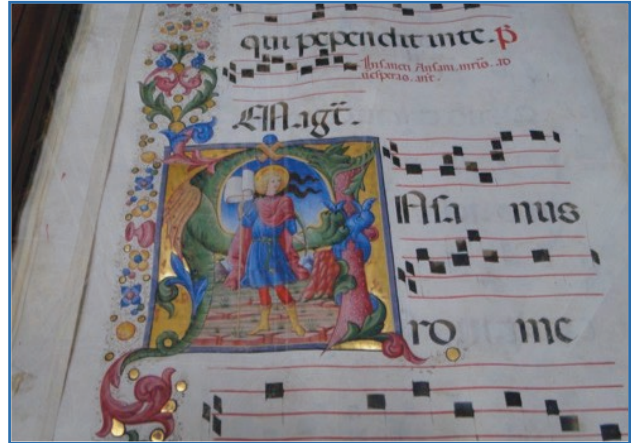 qui pependit in te. p̄
In sancti Ansani. mr̄io. ad
uesperas. ant̄.
Magt̄.
Ansa nus
ro me